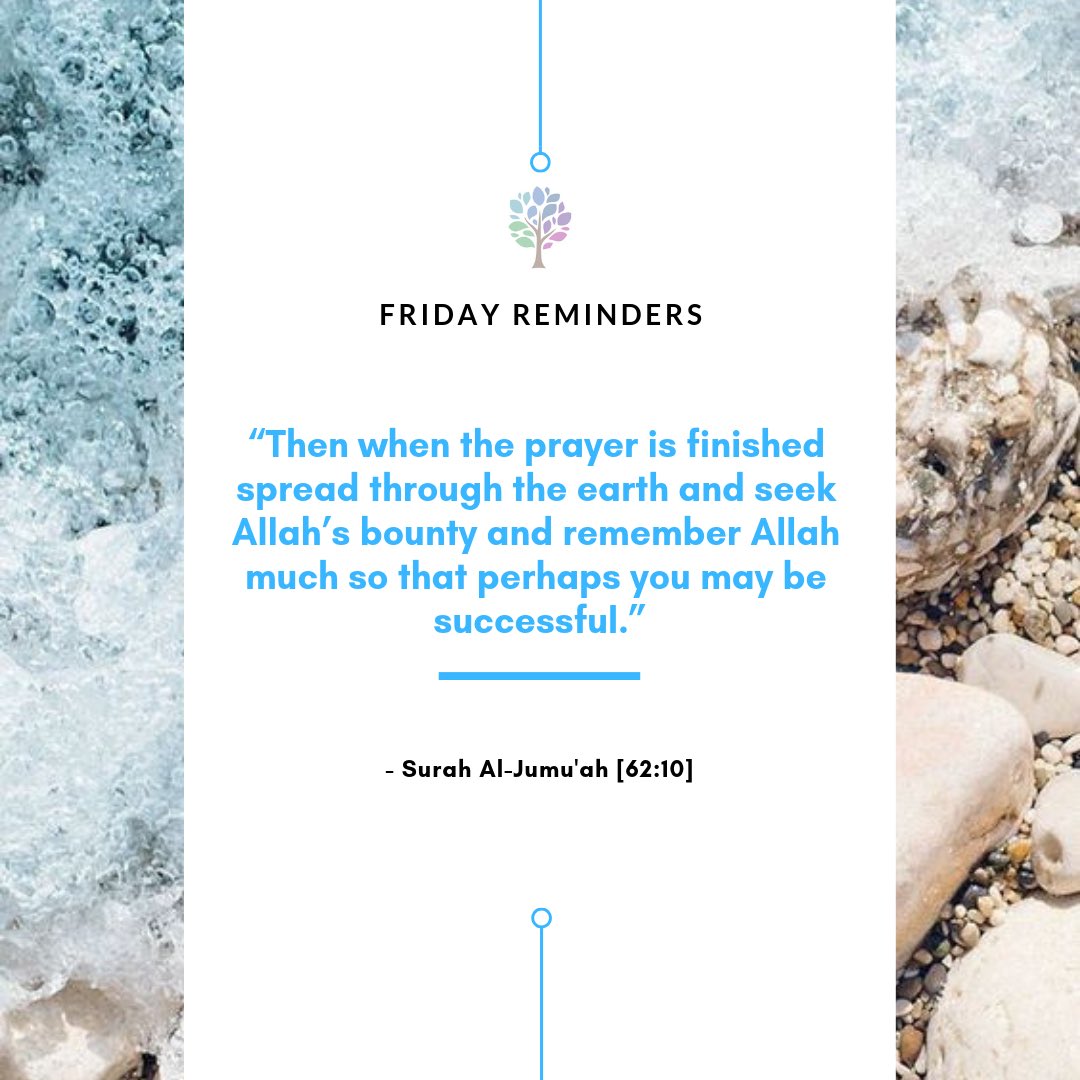 FRIDAY REMINDERS
“Then when the prayer is finished
spread through the earth and seek
Allah’s bounty and remember Allah
much so that perhaps you may be
successful.”
- Surah Al-Jumu'ah [62:10]